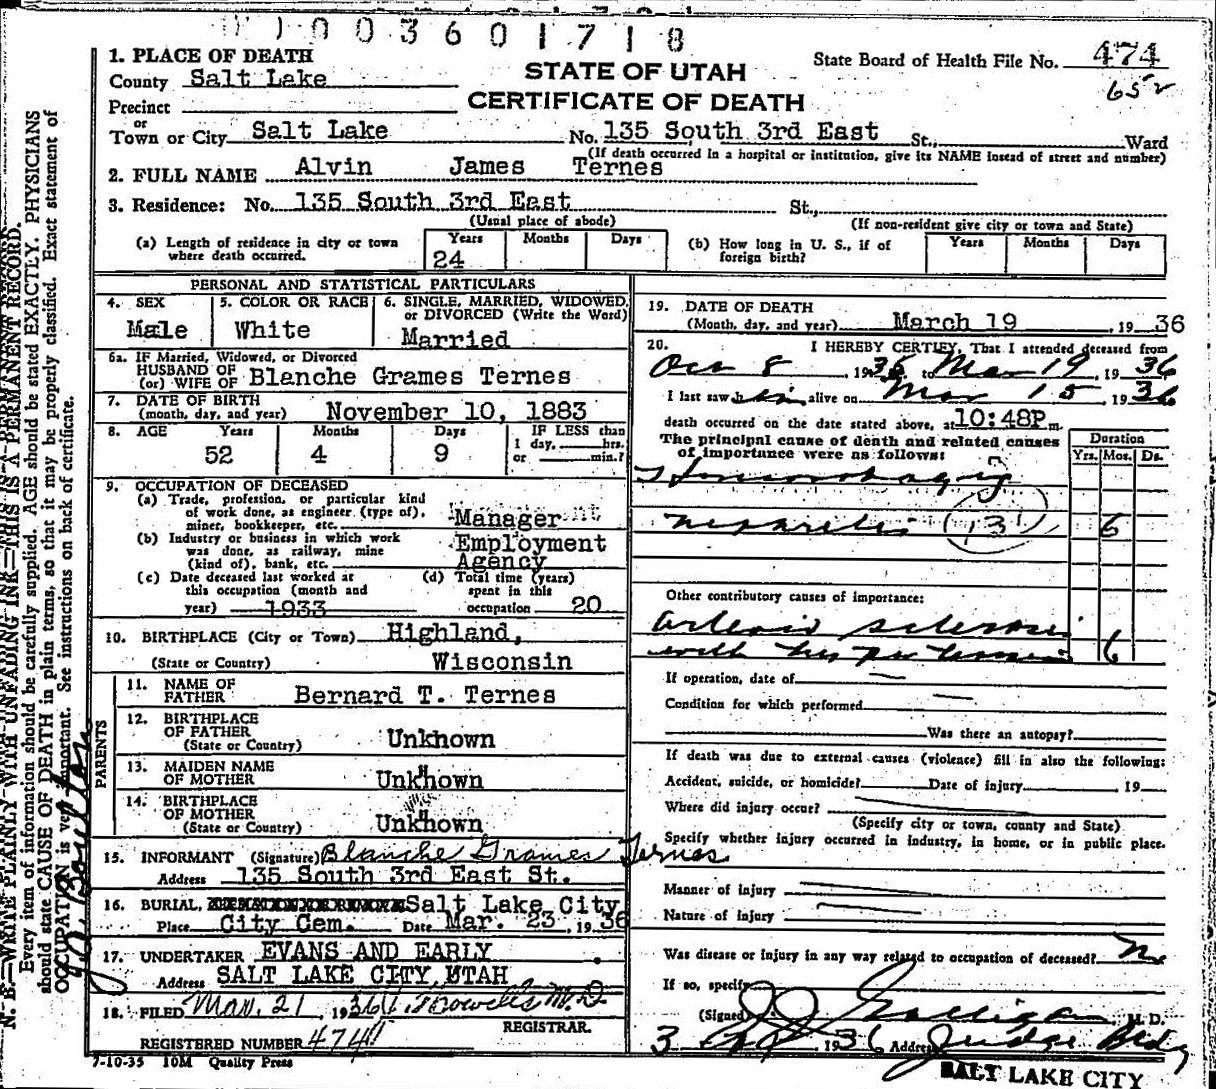 1003601718
1. PLACE OF DEATH
State Board of Health File No. 474
County Salt Lake
STATE OF UTAH
652
Precinct
CERTIFICATE OF DEATH
or
Town or City Salt Lake No. 135 South 3rd East St., Ward
(If death occurred in a hospital or institution, give its NAME insead of street and number)
2. FULL NAME Alvin James Ternes
3. Residence: No. 135 South 3rd East St.,
(Usual place of abode) (If non-resident give city or town and State)
(a) Length of residence in city or town where death occurred. Years 24 Months Days
(b) How long in U. S., if of foreign birth? Years Months Days
PERSONAL AND STATISTICAL PARTICULARS
4. SEX Male
5. COLOR OR RACE White
6. SINGLE, MARRIED, WIDOWED, or DIVORCED (Write the Word) Married
6a. IF Married, Widowed, or Divorced
HUSBAND OF
(or) WIFE OF Blanche Grames Ternes
7. DATE OF BIRTH
(month, day, and year) November 10, 1883
8. AGE Years 52 Months 4 Days 9 IF LESS than 1 day, hrs. or min.?
9. OCCUPATION OF DECEASED
(a) Trade, profession, or particular kind
of work done, as engineer (type of),
miner, bookkeeper, etc. Manager
(b) Industry or business in which work
was done, as railway, mine
(kind of), bank, etc. Employment Agency
(c) Date deceased last worked at
this occupation (month and
year) 1933
(d) Total time (years)
spent in this
occupation 20
10. BIRTHPLACE (City or Town) Highland,
(State or Country) Wisconsin
PARENTS
11. NAME OF FATHER Bernard T. Ternes
12. BIRTHPLACE OF FATHER
(State or Country) Unknown
13. MAIDEN NAME OF MOTHER Unknown
14. BIRTHPLACE OF MOTHER
(State or Country) Unknown
15. INFORMANT (Signature) Blanche Grames Ternes
Address 135 South 3rd East St.
16. BURIAL, Salt Lake City
Place City Cem. Date Mar. 23, 1936
17. UNDERTAKER EVANS AND EARLY
Address SALT LAKE CITY, UTAH
18. FILED Mar. 21 1936 M.D
REGISTRAR.
REGISTERED NUMBER 474
7-10-35 10M Quality Press
19. DATE OF DEATH
(Month, day, and year) March 19, 1936
20. I HEREBY CERTIFY, That I attended deceased from
Oct 8, 1935 to Mar 19, 1936
I last saw him alive on Mar 15 1936
death occurred on the date stated above, at 10:48P m.
The principal cause of death and related causes
of importance were as follows:
Duration
Yrs. Mos. Ds.
Hemorrhagic
nephritis 131 6
Other contributory causes of importance:
Arterio sclerosis
with hypertension 6
If operation, date of
Condition for which performed
Was there an autopsy?
If death was due to external causes (violence) fill in also the following:
Accident, suicide, or homicide? Date of injury 19
Where did injury occur?
(Specify city or town, county and State)
Specify whether injury occurred in industry, in home, or in public place.
Manner of injury
Nature of injury
Was disease or injury in any way related to occupation of deceased? No
If so, specify
(Signed) M. D.
1936 Address Judge Bldg
SALT LAKE CITY
N. B.—WRITE PLAINLY WITH UNFADING INK—THIS IS A PERMANENT RECORD.
Every item of information should be carefully supplied. AGE should be stated EXACTLY. PHYSICIANS
should state CAUSE OF DEATH in plain terms, so that it may be properly classified. Exact statement of
OCCUPATION is very important. See instructions on back of certificate.